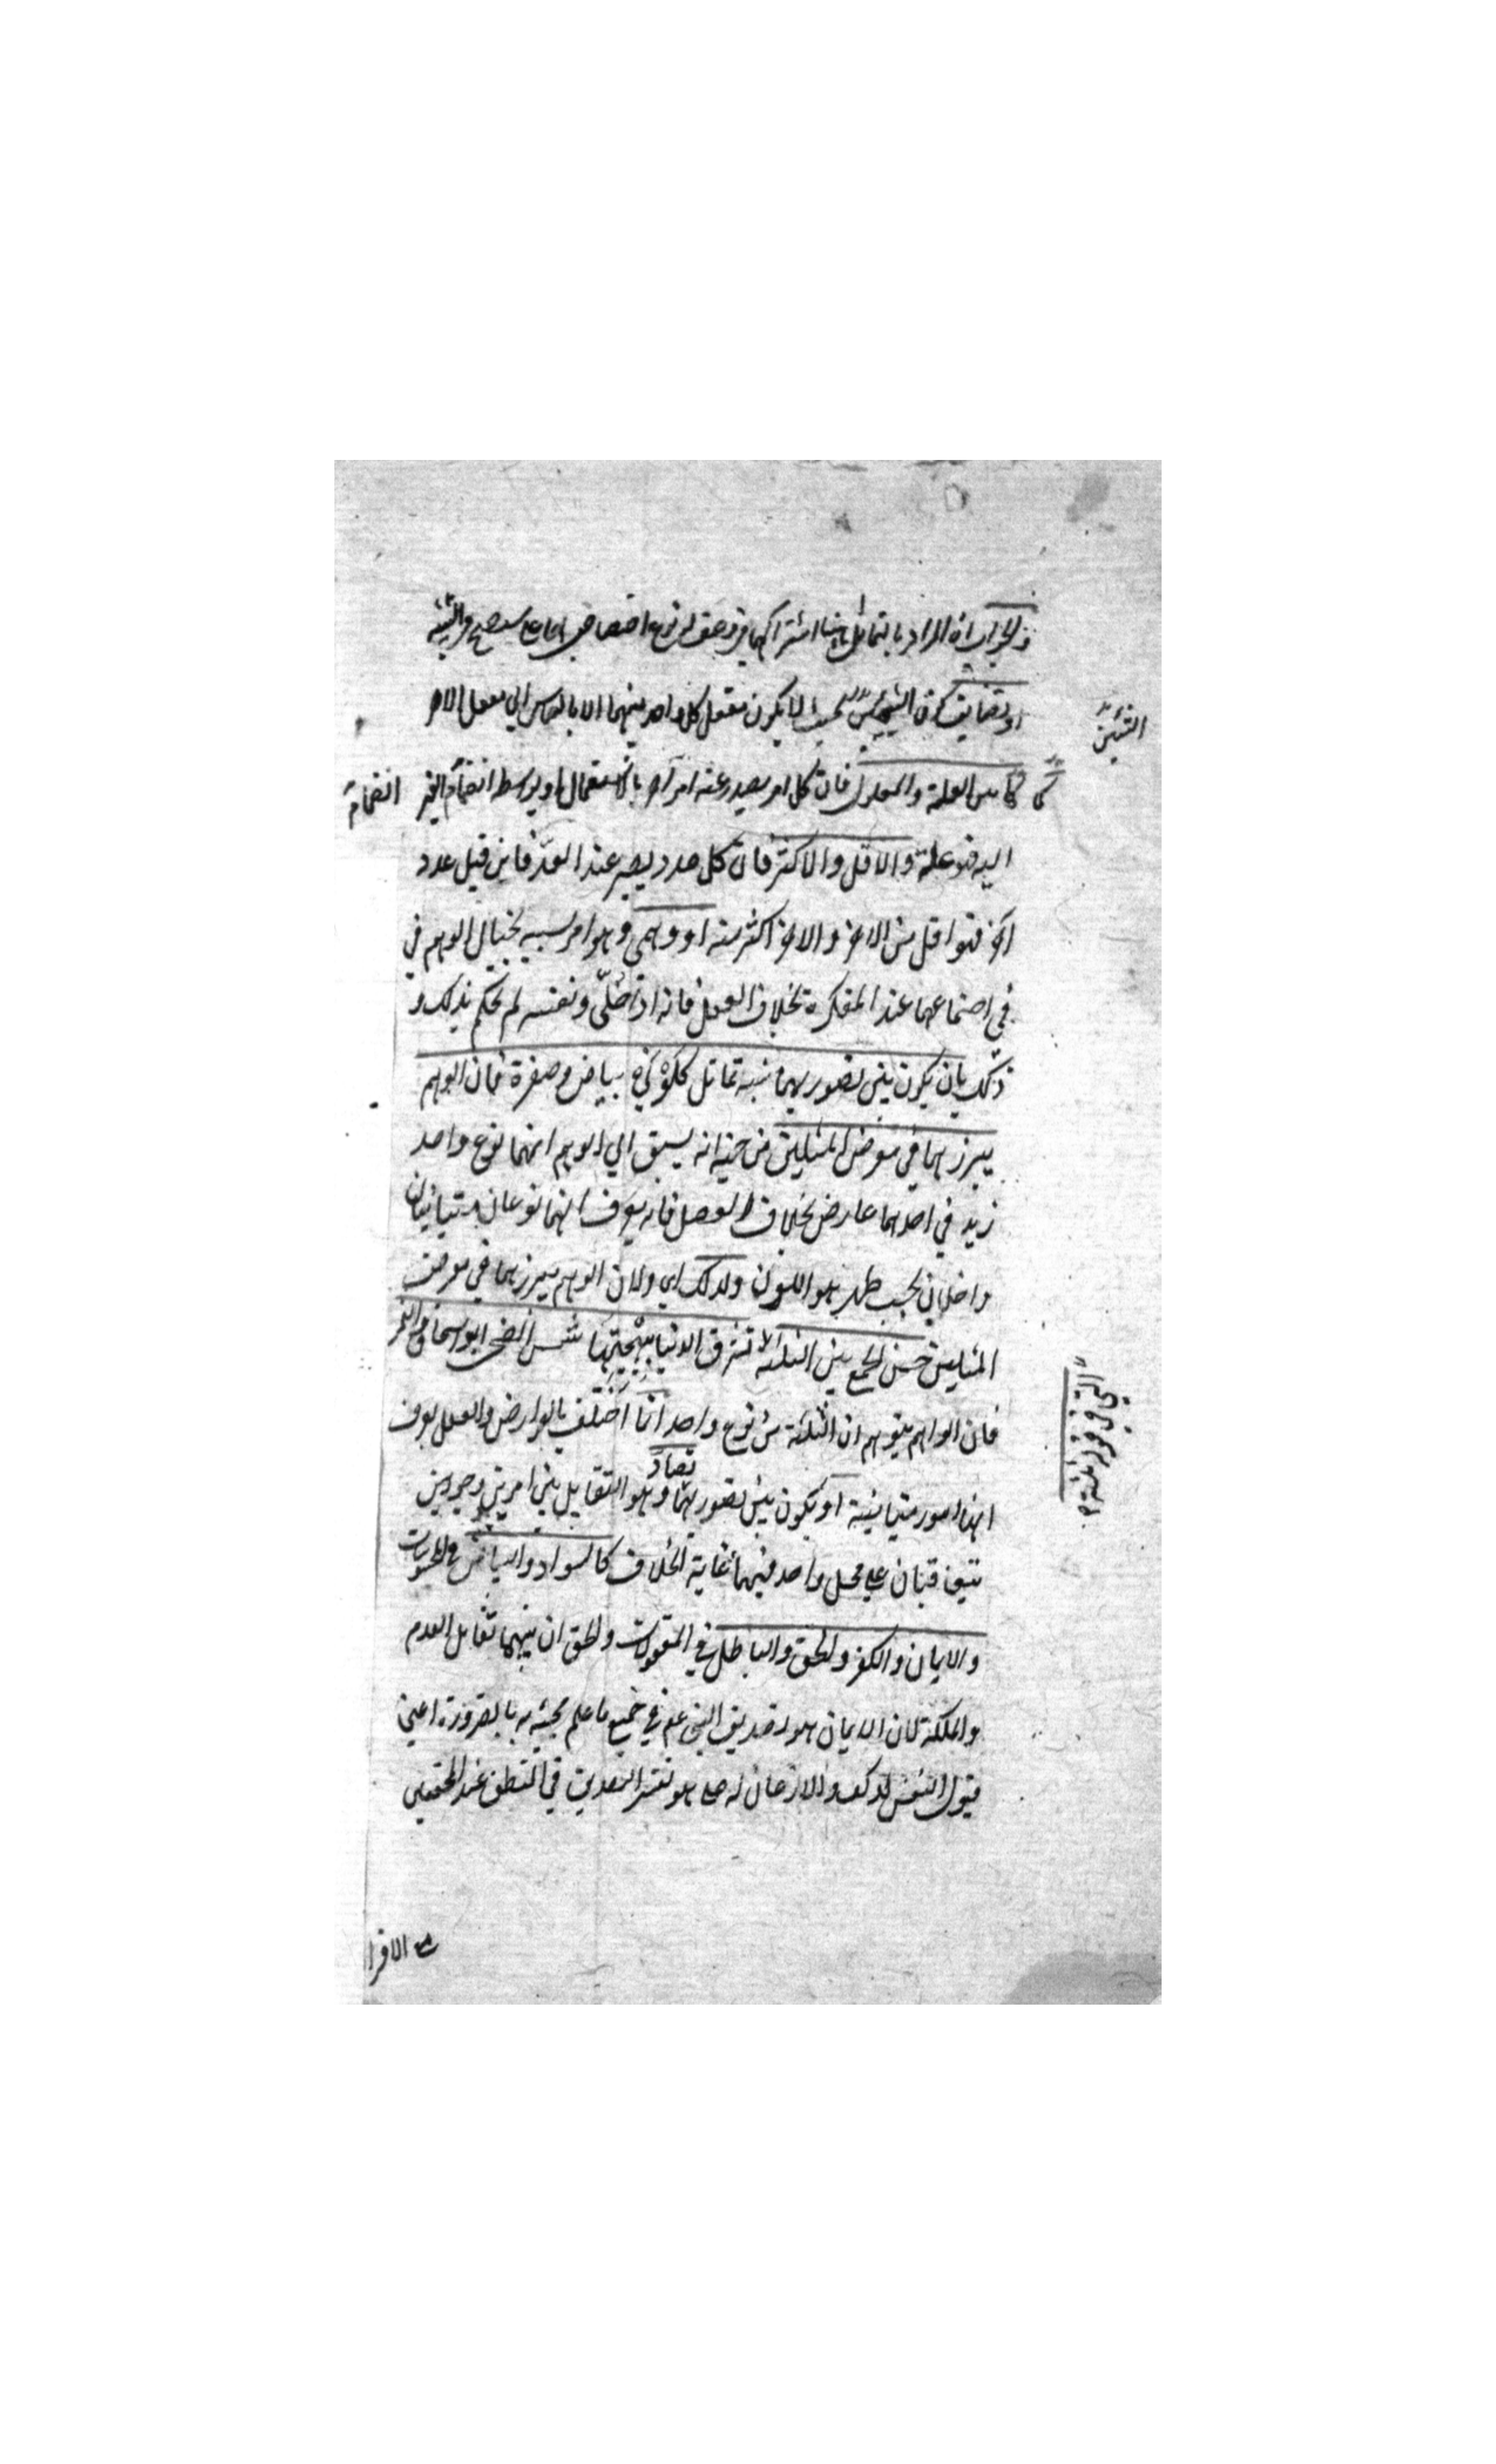 والجواب ان المراد بالتماثل هنا اشتراكهما في وصف له نوع اختصاص بهما على ما سيتضح في التشبيه
او تضايف كون الشيئين بحيث لا يكون تعقل كل واحد منهما الا بالقياس الي تعقل الاخر
الشيئين
كما بين العلة والمعلول فان كل امر يصدر عنه امر آخر بالاستقلال او بواسطة انضمام الغير
انضمام
اليه فهو علة والاقل والاكثر فان كل عدد يصير عند العد فانيا قبل عدد
آخر فهو اقل من الاخر والاخر اكثر منه او وهمي وهو امر بسببه يحتال الوهم في
في اجتماعهما عند المفكرة بخلاف العقل فانه اذا خلّي ونفسه لم يحكم بذلك و
ذلك بان يكون بين تصوريهما شبه تماثل كلوني بياض وصفرة فان الوهم
يبرزهما في معرض المثلين من جهة انه يسبق الي الوهم انهما نوع واحد
زيد في احدهما عارض بخلاف العقل فانه يعرف انهما نوعان متباينان
داخلان تحت جنس هو اللون ولذلك اي ولان الوهم يبرزهما في معرض
المثلين حسن الجمع بين الثلثة ثلاثة تشرق الدنيا ببهجتها شمس الضحي ابو اسحاق والقمر
التي في قوله
فان الوهم يتوهم ان الثلثة من نوع واحد انما اختلف بالعوارض والعقل يعرف
انها امور متباينة او يكون بين تصوريهما تضاد وهو التقابل بين امرين وجوديين
يتعاقبان علي محل واحد بينهما غاية الخلاف كالسواد والبياض في المحسوسات
والايمان والكفر والحق والباطل في المعقولات والحق ان بينهما تقابل العدم
والملكة لان الايمان هو تصديق النبي عم في جميع ما علم مجيئه به بالضرورة اعني
قبول النفس لذلك والاذعان له علي ما هو تفسير التصديق في المنطق عند المحققين
مع الاقرار